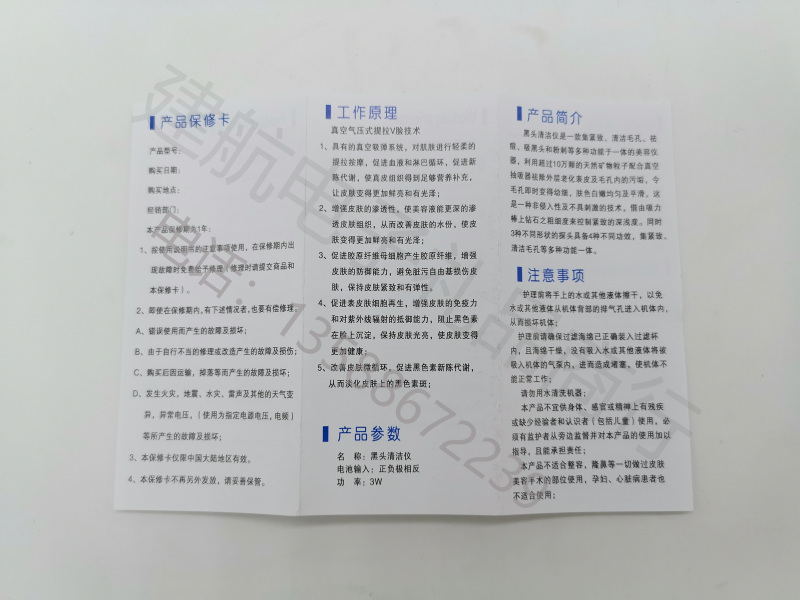 产品保修卡
产品型号：
购买日期：
购买地点：
经销部门：
本产品保修期为1年：
1、按使用说明书的注意事项使用，在保修期内出
现故障时免费给予修理（修理时请提交商品和
本保修卡）。
2、即使在保修期内，有下述情况者，也要有偿修理，
A、错误使用而产生的故障及损坏；
B、由于自行不当的修理或改造产生的故障及损伤；
C、购买后因运输，掉落等而产生的故障及损坏；
D、发生火灾、地震、水灾、雷声及其他的天气变
异，异常电压，（使用为指定电源电压，电频）
等所产生的故障及损坏；
3、本保修卡仅限中国大陆地区有效。
4、本保修卡不再另外发放，请妥善保管。
工作原理
真空气压式提拉V脸技术
1、具有的真空吸弹系统，对肌肤进行轻柔的
提拉按摩，促进血液和淋巴循环，促进新
陈代谢，使真皮组织得到足够营养补充，
让皮肤变得更加鲜亮和有光泽；
2、增强皮肤的渗透性，使美容液能更深的渗
透皮肤组织，从而改善皮肤的水份、使皮
肤变得更加鲜亮和有光泽；
3、促进胶原纤维母细胞产生胶原纤维，增强
皮肤的防御能力，避免脏污自由基损伤皮
肤，保持皮肤紧致和有弹性。
4、促进表皮肤细胞再生，增强皮肤的免疫力
和对紫外线辐射的抵御能力，阻止黑色素
在脸上沉淀，保持皮肤光亮，使皮肤变得
更加健康；
5、改善皮肤微循环，促进黑色素新陈代谢，
从而淡化皮肤上的黑色素斑；
产品参数
名　称：黑头清洁仪
电池输入：正负极相反
功　率：3W
产品简介
黑头清洁仪是一款集紧致、清洁毛孔、祛
痘、吸黑头和粉刺等多种功能于一体的美容仪
器，利用超过10万颗的天然矿物粒子配合真空
抽吸器祛除外层老化表皮及毛孔内的污垢，令
毛孔即时变得幼细，肤色白嫩均匀及平滑，这
是一种非侵入性及不具刺激的技术，借由吸力
棒上钻石之粗细度来控制紧致的深浅度。同时
3种不同形状的探头具备4种不同功效，集紧致、
清洁毛孔等多种功能一体。
注意事项
护理前将手上的水或其他液体擦干，以免
水或其他液体从机体背部的排气孔进入机体内，
从而损坏机体；
护理前请确保过滤海绵已正确装入过滤杯
内，且海绵干燥，没有吸入水或其他液体将被
吸入机体的气泵内，进而造成堵塞，使机体不
能正常工作；
请勿用水清洗机器；
本产品不宜供身体、感官或精神上有残疾
或缺少经验者和认识者（包括儿童）使用，必
须有监护者从旁边监督并对本产品的使用加以
指导，且能承担责任；
本产品不适合整容，隆鼻等一切做过皮肤
美容手术的部位使用，孕妇、心脏病患者也
不适合使用；